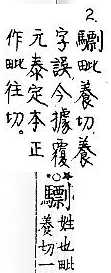 2. 驃毗養切養
字誤今據覆
元泰定本正
作毗往切。
驃 姓也毗
養切一